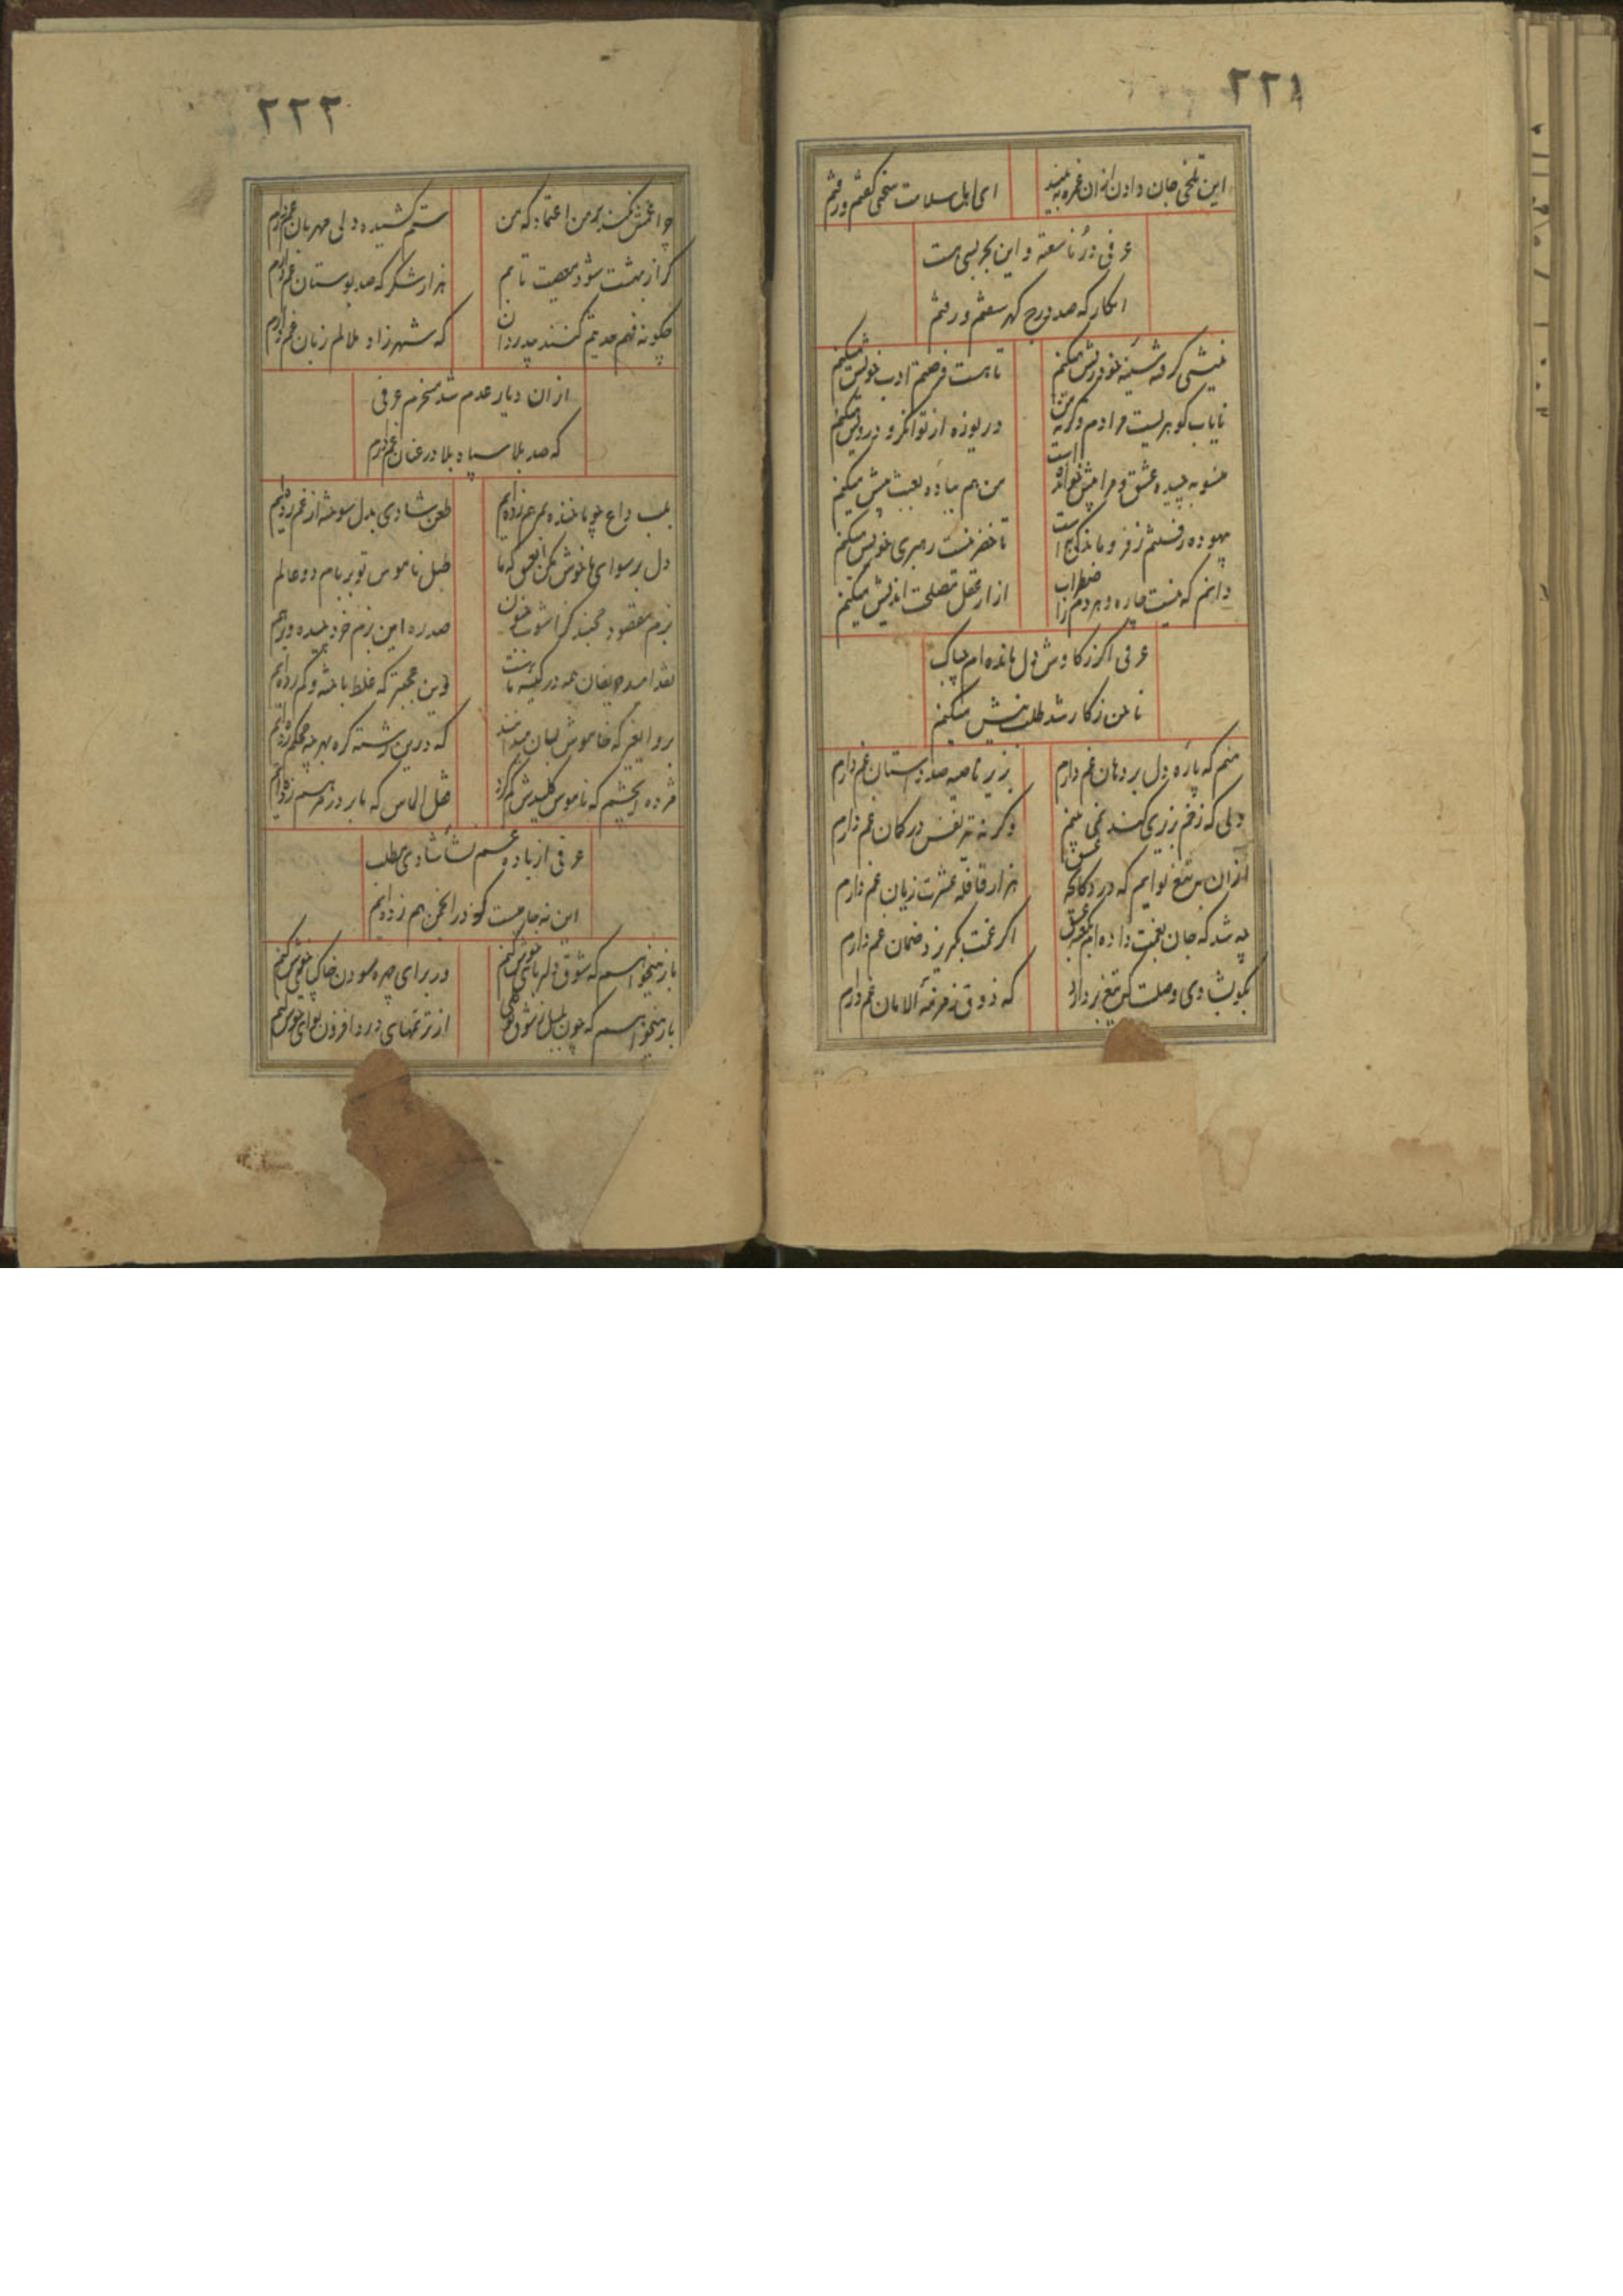 ۲۲۱
این تلخی جان دادن ازان غمزه ببینید
ای اهل سلامت سخنی گفتم و رفتم
عرفی دُر ناسفته درین بحر بسی هست
انگار که صد درج گهر سفتم و رفتم
نیشی کرو سینه خود ریش میکنم
تا هست فرصتم ادب خویش میکنم
نایاب گوهریست مرادم وگرنه من
دریوزه از توانگر و درویش میکنم
منصوبه چیده عشق و مرا پیش خوانده است
من هم پیاده بعبث پیش میکنم
بیهوده رفتنم ز فرو ماندگی است
تا خضر نیست رهبری خویش میکنم
دانم که نیست چاره و هر دم ز اضطراب
ازار عقل مصلحت اندیش میکنم
عرفی اگر ز کاوش دل مانده ام چه باک
ناخن ز کار شد طلب نیش میکنم
منم که پاره دل بر دهان غم دارم
بزیر ناصیه صد دوستان غم دارم
دلی که زخم برزی کهند نمی بینم
وگرنه تیر نفس در کمان غم دارم
ازان به تیغ نوایم که در دکانچه عشق
هزار قافله عشرت زیان غم دارم
چه شد که جان بغمت داده ام بمعرض عشق
اگر غمت بگریزد ضمان غم دارم
بگو بشادی وصلت که تیغ بردارد
که ذوق زمزمه الامان غم دارم
۲۲۲
چرا غمش نکند بر من اعتماد که من
ستم کشیده دلی مهربان غم دارم
گر از بهشت شود معصیت تابم
هزار شکر که صد بوستان غم دارم
چگونه فهم حدیثم کنند بیدردان
که شهرزاد ملالم زبان غم دارم
ازان دیار عدم شد مسخرم عرفی
که صد بلا سپاه بلا در عنان غم دارم
بلب داغ چو ما خنده مرهم زده ایم
طعن شادی بدل سوخته از غم زده ایم
دل برسوای ما خوش مکن ایعشق که ما
طبل ناموس تو بر بام دو عالم
بزم مقصود مچینید که آشوب جنون
صد ره این بزم خرد چیده و برهم
نقد امید حریفان همه در کیسه ماست
وین عجبتر که غلط باخته و کم زده ایم
برو ایغیر که خاموش لبان میدانند
که درین رشته گره بهر چه محکم زده ایم
مژده ایچشم که ناموس کلیدش گم کرد
قفل الماس که ما بر در مرهم زده ایم
عرفی از باده غم نشأ شادی مطلب
این نه جامیست که در انجمن هم زده ایم
باز میخواهم که شوق دلربای خویش کنم
در برای چهره سودن خاک پای خویش کنم
باز میخواهم که چون بلبل ز شوق گلی
از ترنمهای درد افزون نوای خوش کنم